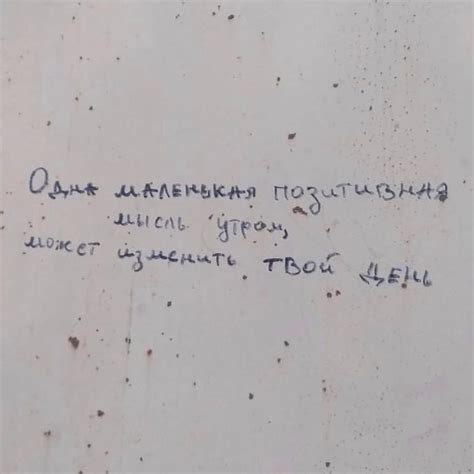 Одна маленькая позитивная
мысль утром,
может изменить твой день